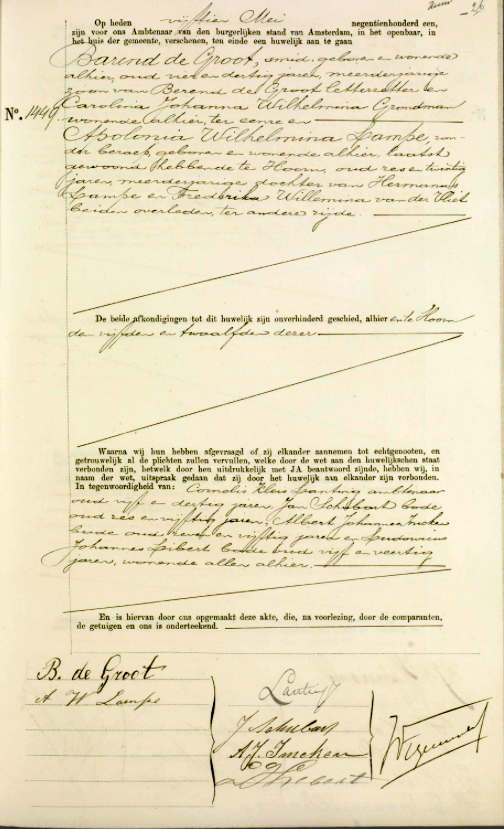 Op heden vijftien Mei negentienhonderd een,
zijn voor ons Ambtenaar van den burgerlijken stand van Amsterdam, in het openbaar, in
het huis der gemeente, verschenen, ten einde een huwelijk aan te gaan
Barend de Groot, smid, geboren en wonende
alhier, oud vier en dertig jaren, meerderjarige
zoon van Berend de Groot letterzetter en
Carolina Johanna Wilhelmina Grondman
Nº. 1449
wonende alhier, ter eenre en
Apolonia Wilhelmina Lampe, zon-
der beroep, geboren en wonende alhier, laatst
gewoond hebbende te Hoorn, oud zes en twintig
jaren, meerderjarige dochter van Hermanus
Lampe en Frederica Willemina van der Vliet
beiden overleden, ter andere zijde.
De beide afkondigingen tot dit huwelijk zijn onverhinderd geschied, alhier en te Hoorn
de vijfden en twaalfden dezer
Waarna wij hun hebben afgevraagd of zij elkander aannemen tot echtgenooten, en
getrouwelijk al de plichten zullen vervullen, welke door de wet aan den huwelijkschen staat
verbonden zijn, hetwelk door hen uitdrukkelijk met JA beantwoord zijnde, hebben wij, in
naam der wet, uitspraak gedaan dat zij door het huwelijk aan elkander zijn verbonden.
In tegenwoordigheid van: Cornelis Lanting ambtenaar
oud vijf en dertig jaren, Jan Schubart bode
oud zes en vijftig jaren, Albert Johannes Imcken
bode oud zeven en vijftig jaren en Ludovicus
Johannes Sibert bode oud vijf en veertig
jaren, wonende allen alhier.
En is hiervan door ons opgemaakt deze akte, die, na voorlezing, door de comparanten,
de getuigen en ons is onderteekend.
B. de Groot
A W Lampe
Lanting
J Schubart
A. J. Imcken